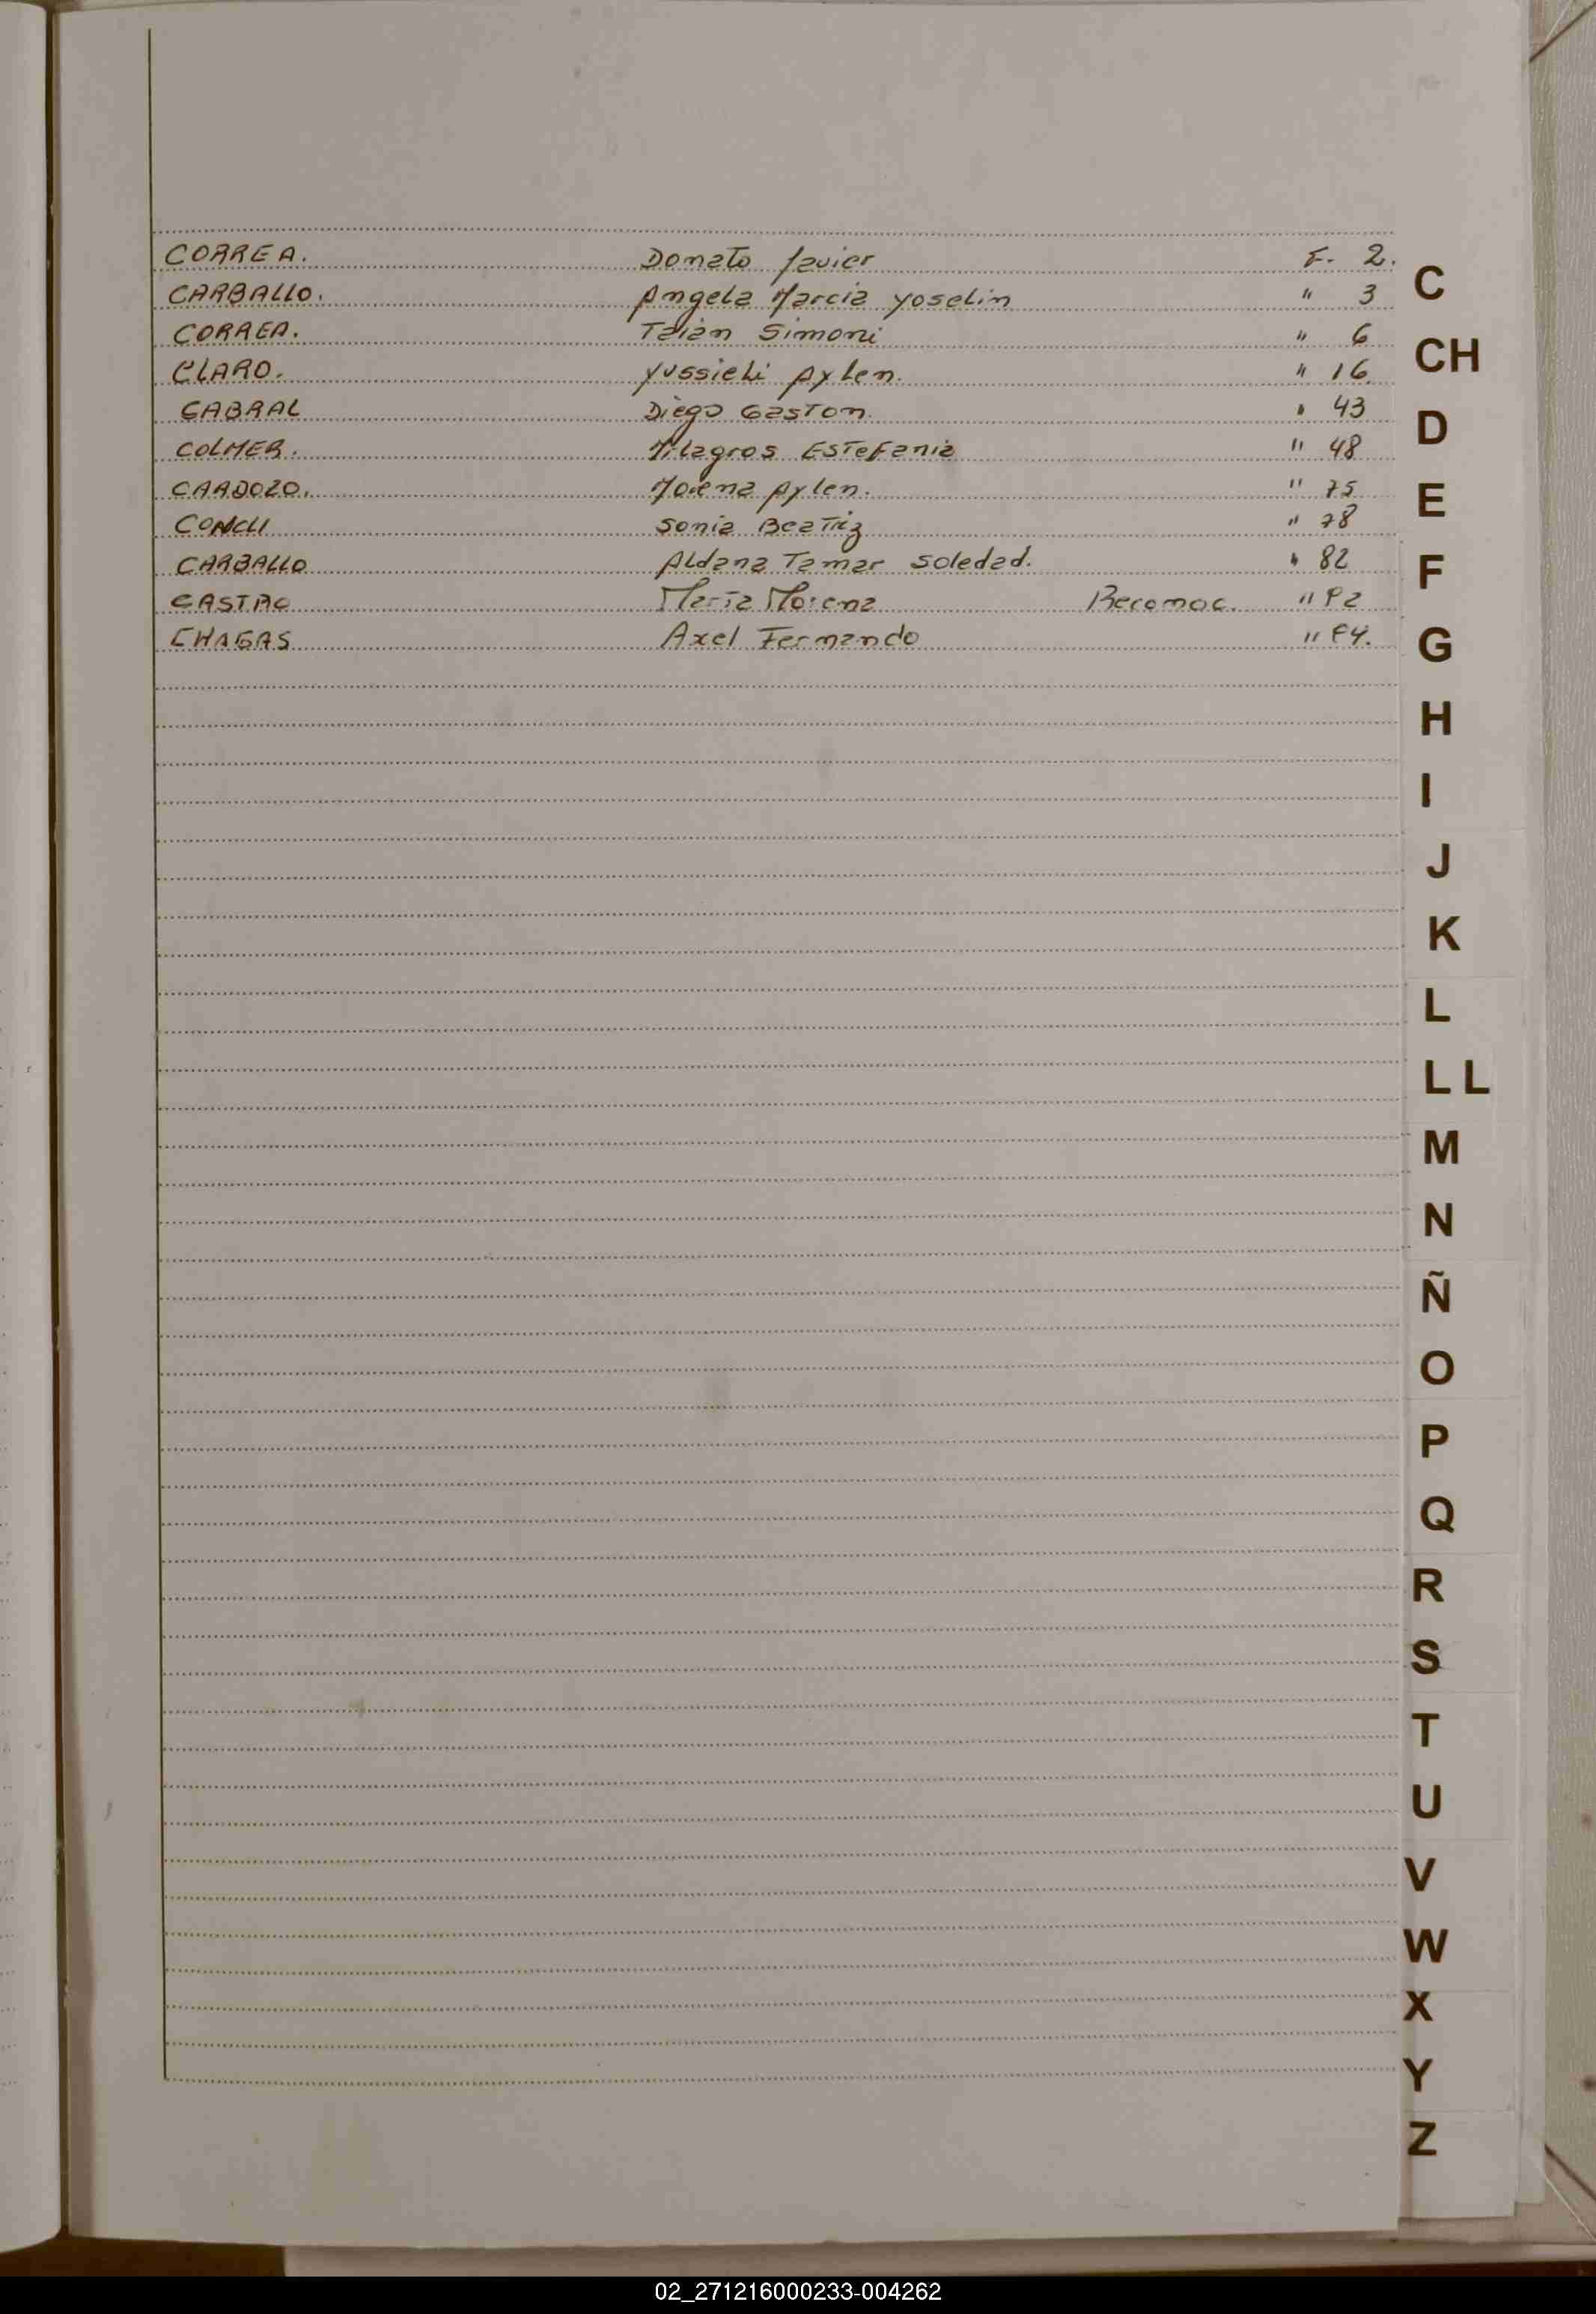 CORREA. Donato Javier F. 2.
CARBALLO. Angela Marcia Yoselin " 3
CORREA. Taian Simoni " 6
CLARO. Yussieli Aylen. " 16
CABRAL Diego Gaston. " 43
COLMER. Milagros Estefania " 48
CARDOZO. Morena Aylen. " 75
Sonia Beatriz " 78
CARBALLO Aldana Tamar Soledad. " 82
CASTRO Maria Morena Reconoc.
CHAGAS Axel Fernando
C
CH
D
E
F
G
H
I
J
K
L
LL
M
N
Ñ
O
P
Q
R
S
T
U
V
W
X
Y
Z
02_271216000233-004262